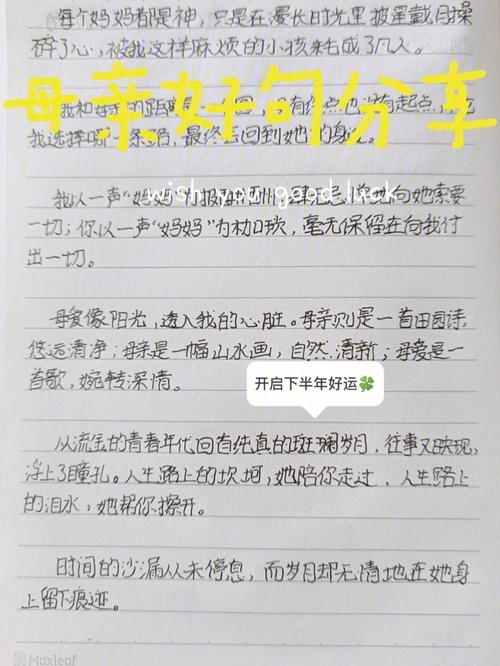 每个妈妈都是神，只是在漫长时光里披星戴月操
碎了心，被我这样麻烦的小孩耗成了凡人。
母亲好句分享
我选择哪一条路，最终会回到她的身边。
wish you good luck
一切；你以一声“妈妈”为枷锁，毫无保留在向我付
出一切。
母爱像阳光，透入我的心脏。母亲则是一首田园诗，
悠远清净；母亲是一幅山水画，自然清新；母爱是一
首歌，婉转深情。
开启下半年好运🍀
从流金的青春年代回首纯真的斑斓岁月，往事又映现，
浮上了瞳孔。人生路上的坎坷，她陪你走过，人生路上
的泪水，她帮你擦干。
时间的沙漏从未停息，而岁月却无情地在她身
上留下痕迹。
Maxleaf